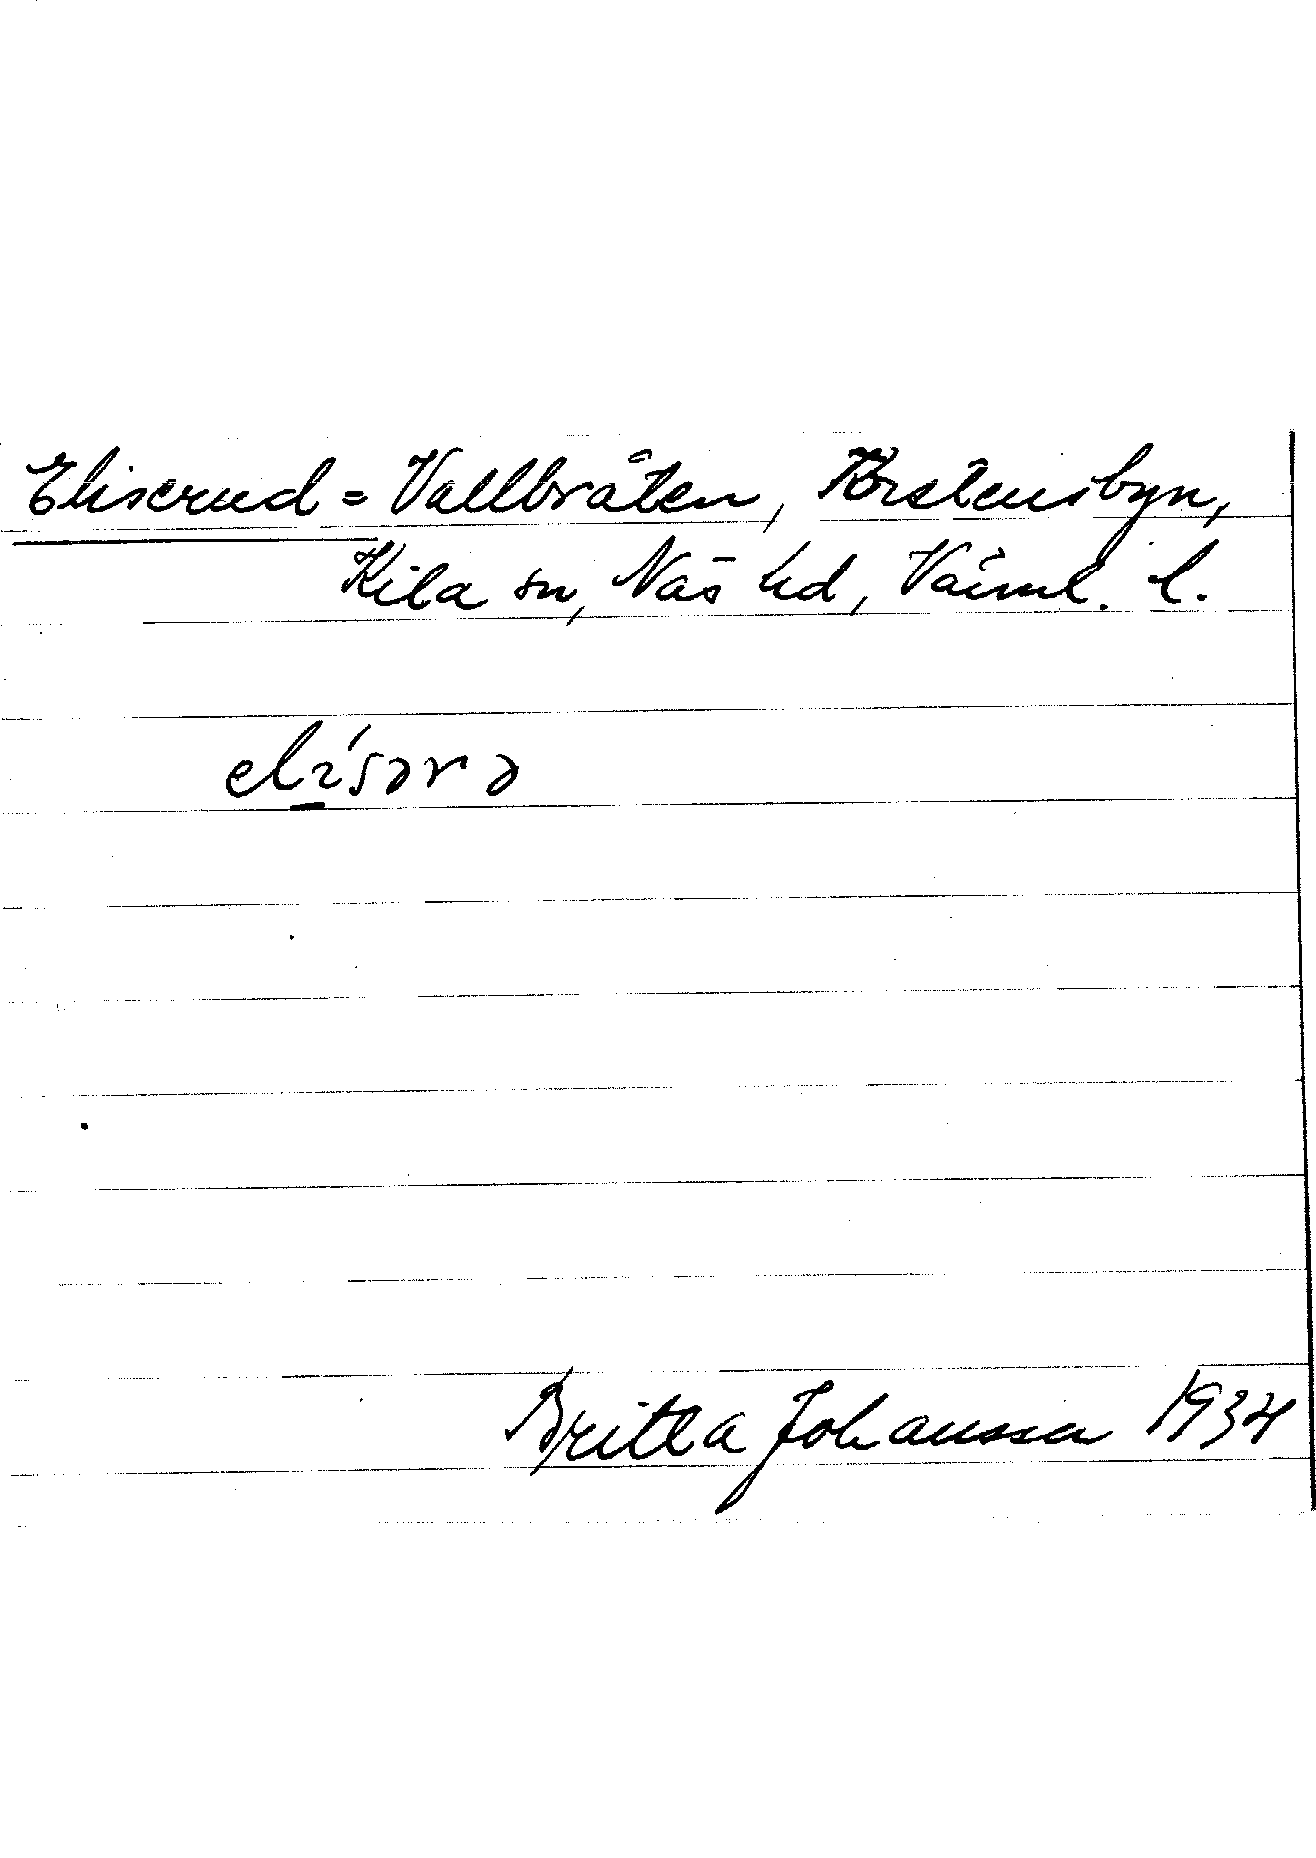 Eliserud = Vallbråten, Korstensbyn,
Kila sn, Näs hd, Värml. l.
elɩ́sərə
Britta Johansson 1934